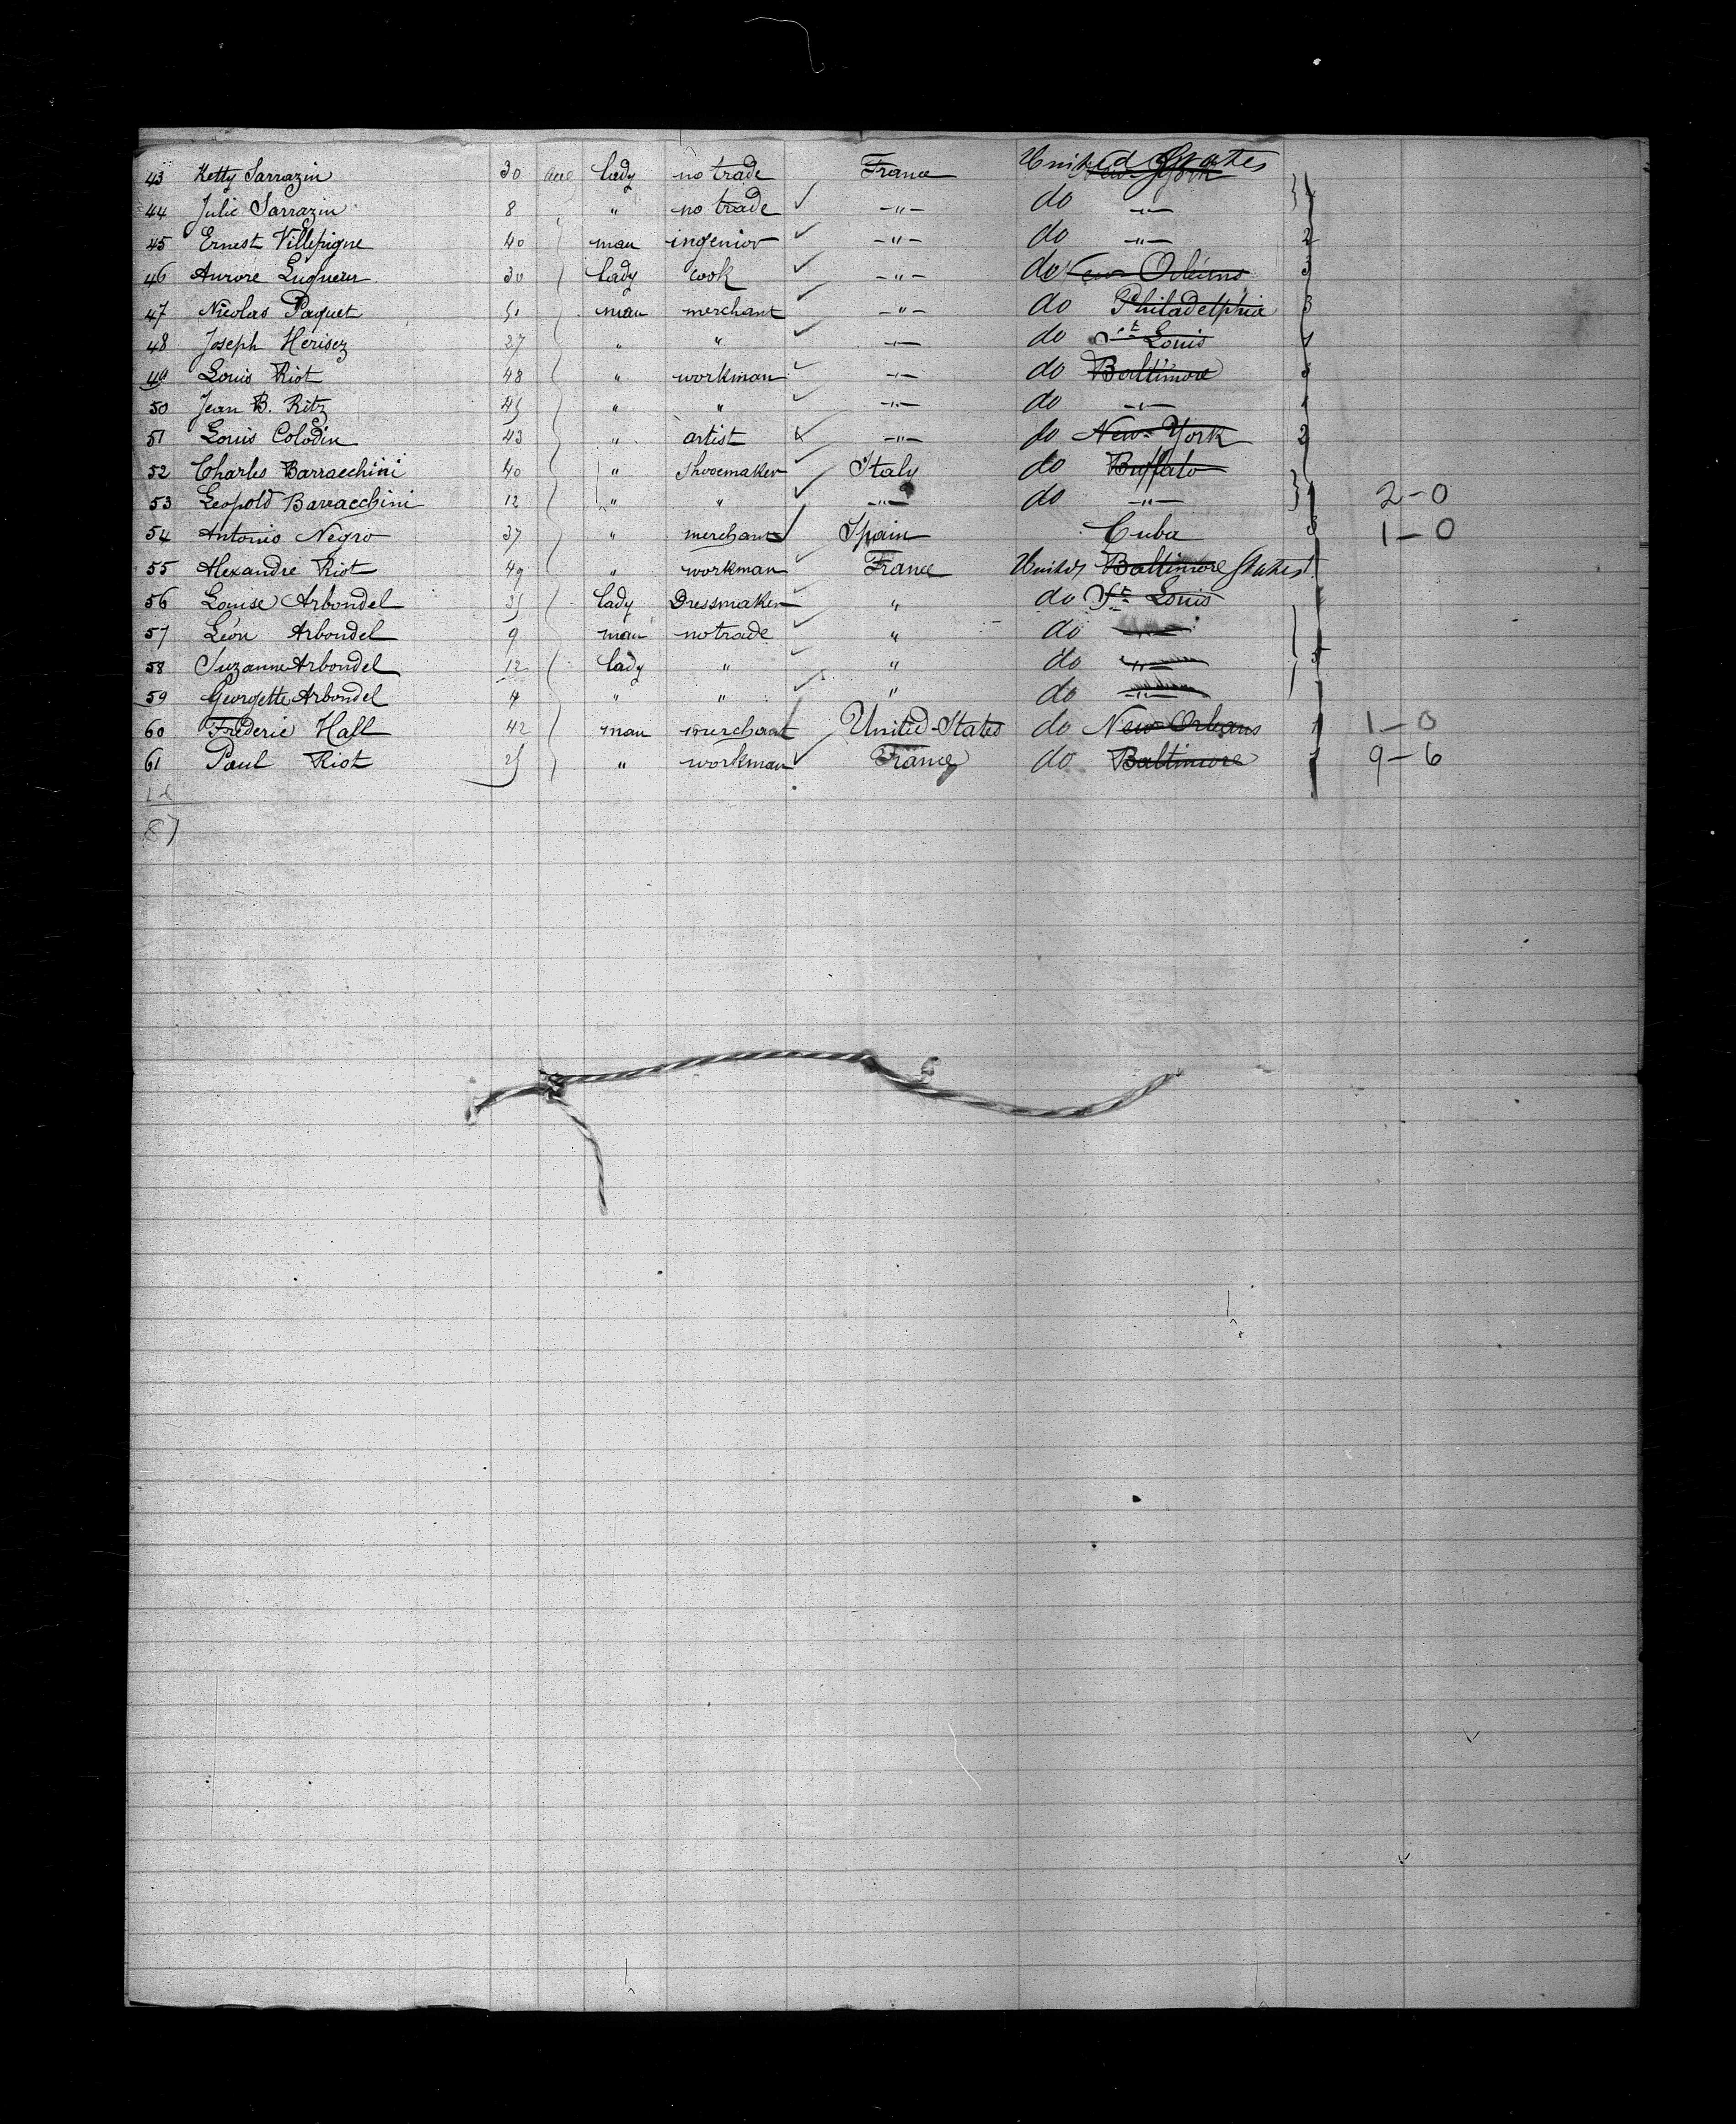 43 Ketty Sarrazin 30 lady no trade France United States New-York
44 Julie Sarrazin 8 " no trade -"- do -"-
45 Ernest Villepigne 40 man ingenior -"- do -"- 2
46 Aurore Luqueur 30 lady cook -"- do New Orleans 3
47 Nicolas Paquet 51 man merchant -"- do Philadelphia 3
48 Joseph Herisez 27 " " -"- do St Louis 1
49 Louis Riot 48 " workman -"- do Baltimore
50 Jean B. Ritz 45 " " -"- do -"-
51 Louis Colodin 43 " artist -"- do New-York 2
52 Charles Barracchini 40 " Shoemaker Italy do Buffalo
53 Leopold Barracchini 12 " " -"- do -"- 2-0
54 Antonio Negro 37 " merchant Spain Cuba 1-0
55 Alexandre Riot 49 " workman France United Baltimore States
56 Louise Arbondel 35 lady Dressmaker " do St Louis
57 Léon Arbondel 9 man no trade " do -"-
58 Suzanne Arbondel 12 lady " " do -"-
59 Georgette Arbondel 4 " " " do -"-
60 Frederic Hall 42 man merchant United-States do New Orleans 1 1-0
61 Paul Riot 25 " workman France do Baltimore 9-6
87